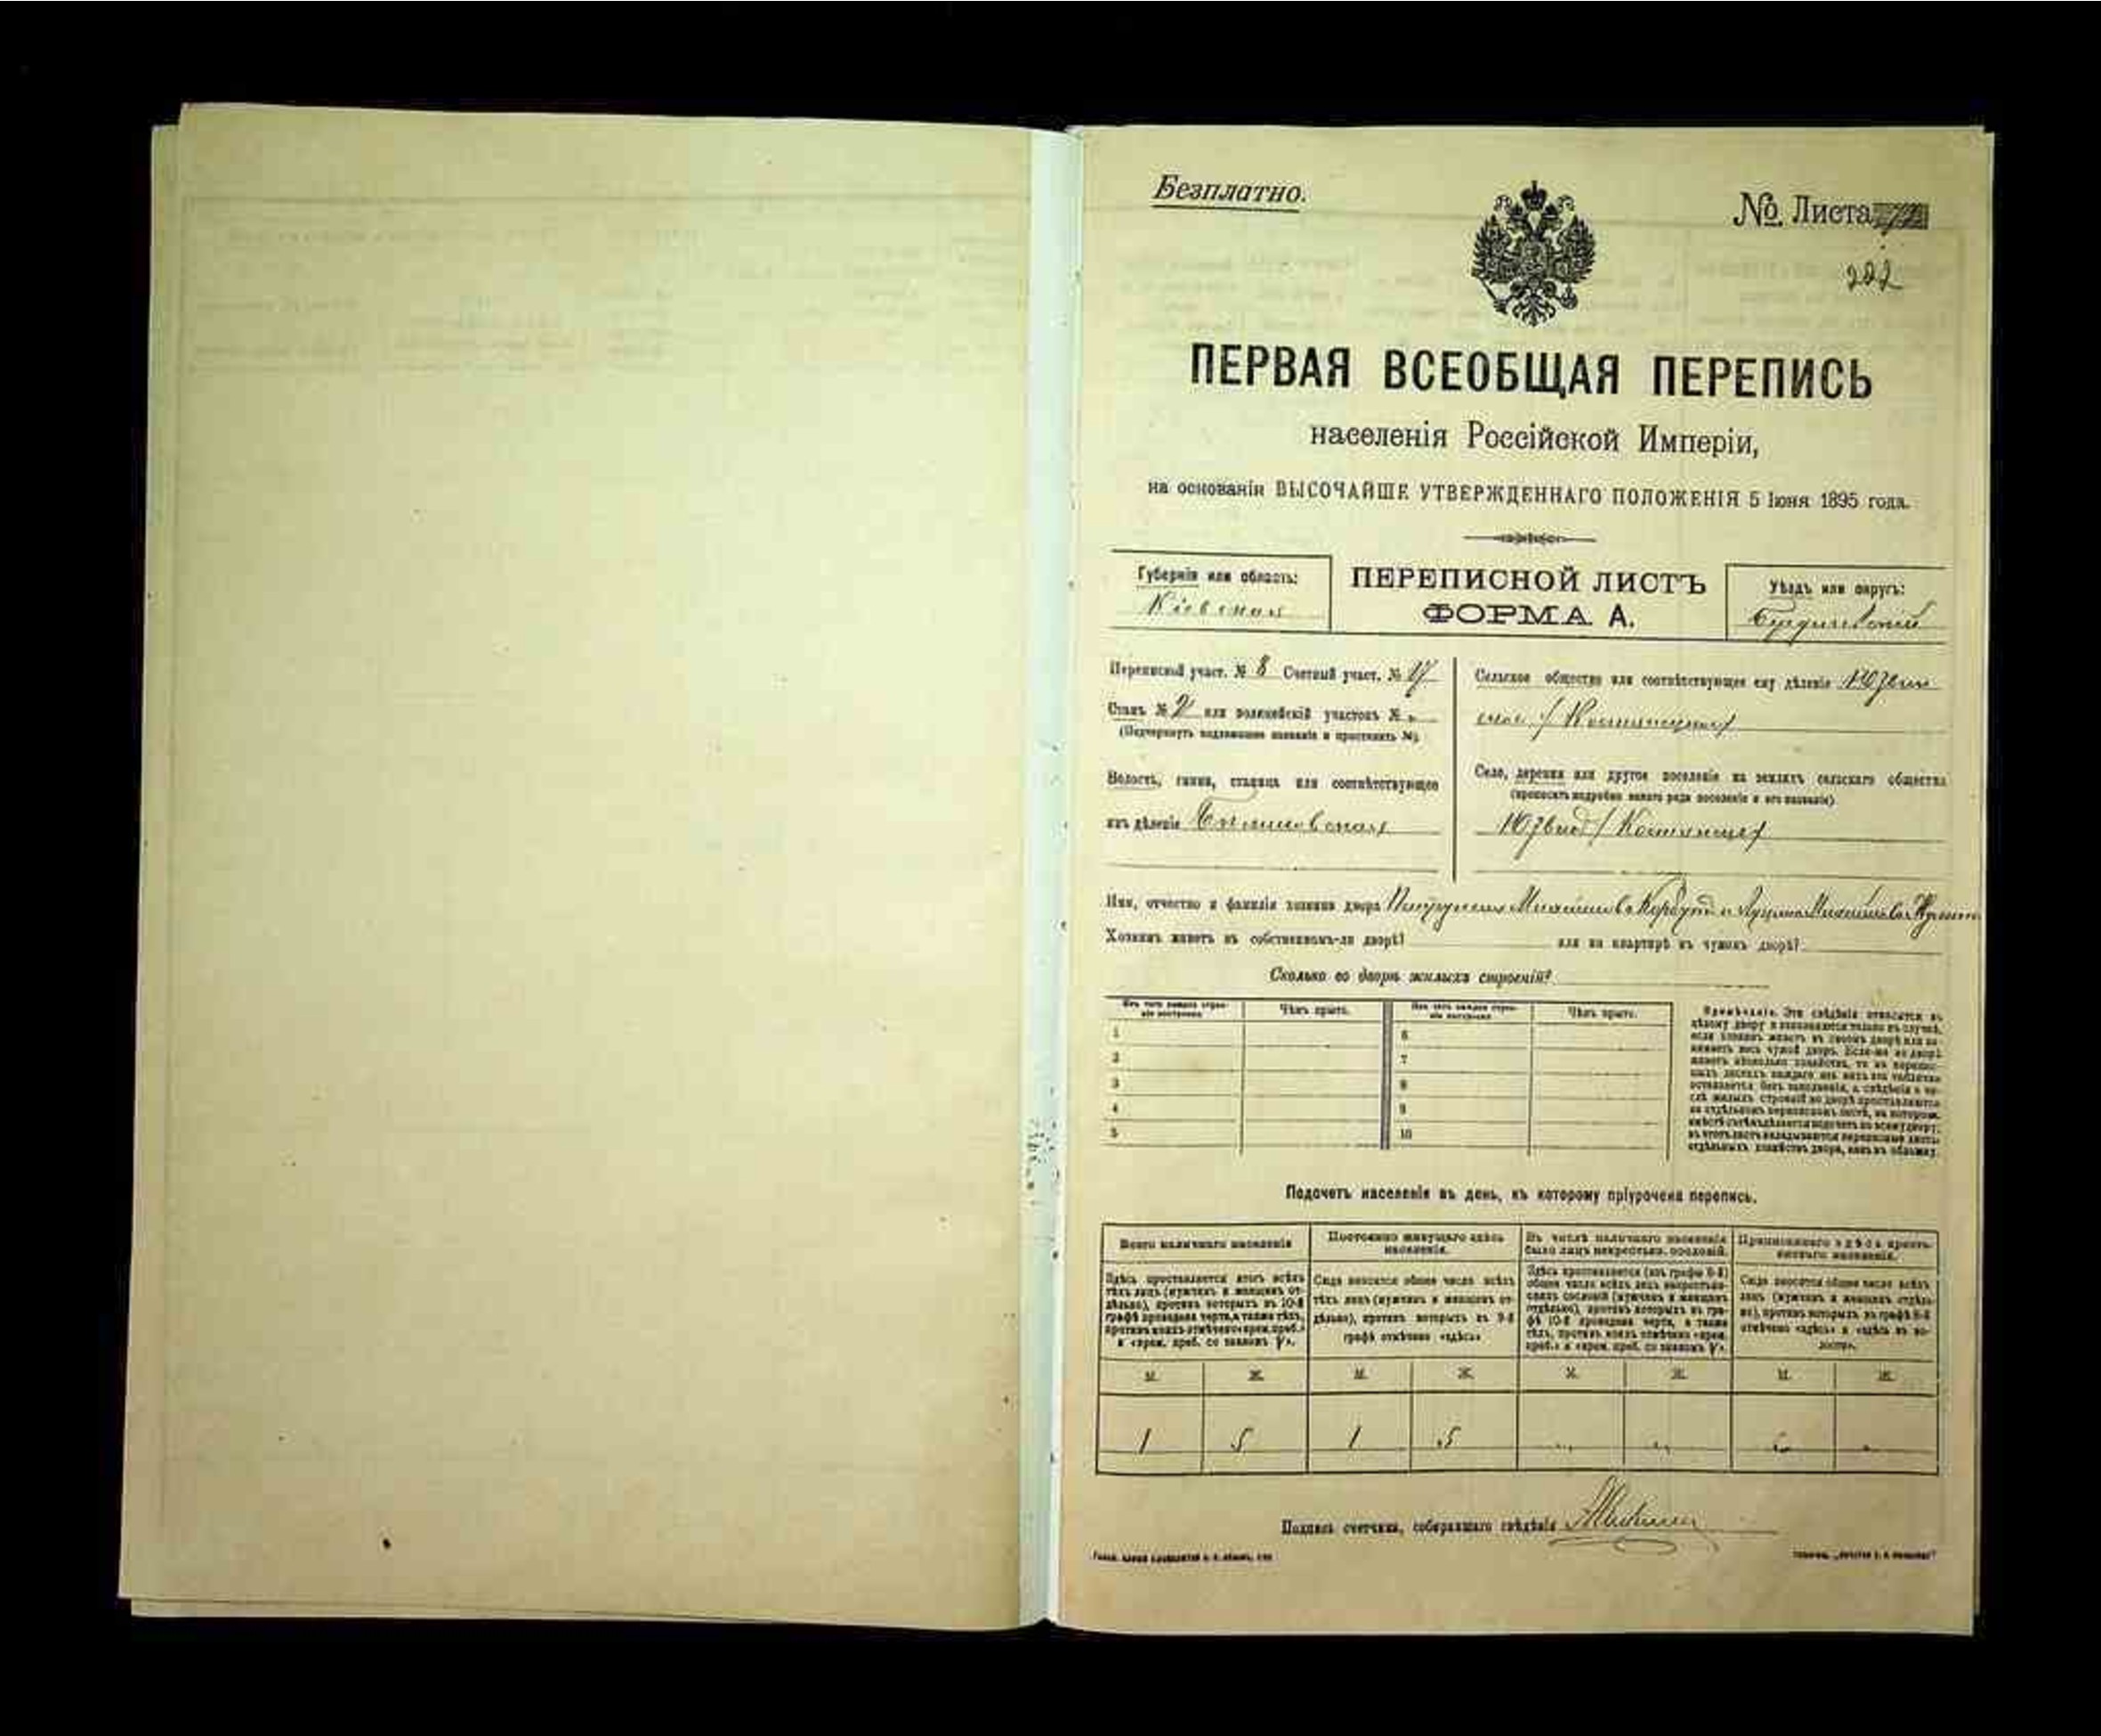 Безплатно.
№ Листа
222
ПЕРВАЯ ВСЕОБЩАЯ ПЕРЕПИСЬ
населенія Россійской Имперіи,
на основаніи ВЫСОЧАЙШЕ УТВЕРЖДЕННАГО ПОЛОЖЕНІЯ 5 Іюня 1895 года.
Губернія или область:
Кіевская
ПЕРЕПИСНОЙ ЛИСТЪ
ФОРМА А.
Уѣздъ или округъ:
Бердичевскій
Переписной участ. № 8 Счетный участ. № 17
Станъ № 2 или полицейскій участокъ №
(Подчеркнуть надлежащее названіе и проставить №).
Волость, гмина, станица или соотвѣтствующее
имъ дѣленіе
Сельское общество или соотвѣтствующее ему дѣленіе
Село, деревня или другое поселеніе на земляхъ сельскаго общества
(прописать подробно какого рода поселеніе и его названіе).
Имя, отчество и фамилія хозяина двора
Хозяинъ живетъ въ собственномъ-ли дворѣ? или на квартирѣ въ чужомъ дворѣ?
Сколько во дворѣ жилыхъ строеній?
Изъ чего каждое строеніе построено. Чѣмъ крыто. Изъ чего каждое строеніе построено. Чѣмъ крыто.
1 6
2 7
3 8
4 9
5 10
Примѣчаніе. Эти свѣдѣнія относятся къ
цѣлому двору и заполняются только въ случаѣ,
если хозяинъ живетъ въ своемъ дворѣ или занимаетъ
весь чужой дворъ. Если-же во дворѣ
живетъ нѣсколько хозяйствъ, то въ переписныхъ
листахъ каждаго изъ нихъ эта табличка
оставляется безъ заполненія, а свѣдѣнія о числѣ
жилыхъ строеній во дворѣ проставляются
на отдѣльномъ переписномъ листѣ, на которомъ
вмѣстѣ съ тѣмъ дѣлается подсчетъ по всему двору;
въ этотъ листъ вкладываются переписные листы
отдѣльныхъ хозяйствъ двора, какъ въ обложку.
Подсчетъ населенія въ день, къ которому пріурочена перепись.
Всего наличнаго населенія
Здѣсь проставляется итогъ всѣхъ
тѣхъ лицъ (мужчинъ и женщинъ отдѣльно),
противъ которыхъ въ 10-й
графѣ проведена черта, а также тѣхъ,
противъ коихъ отмѣчено «врем. преб.»
и «врем. преб. со знакомъ V».
Постоянно живущаго здѣсь
населенія.
Сюда вносится общее число всѣхъ
тѣхъ лицъ (мужчинъ и женщинъ отдѣльно),
противъ которыхъ въ 9-й
графѣ отмѣчено «здѣсь»
Въ числѣ наличнаго населенія
было лицъ некрестьян. сословій.
Здѣсь проставляется (изъ графы 8-й)
общее число всѣхъ лицъ некрестьянскихъ
сословій (мужчинъ и женщинъ
отдѣльно), противъ которыхъ въ графѣ
10-й проведена черта, а также
тѣхъ, противъ коихъ отмѣчено «врем.
преб.» и «врем. преб. со знакомъ V».
Приписаннаго здѣсь крестьянскаго
населенія.
Сюда вносится общее число всѣхъ
лицъ (мужчинъ и женщинъ отдѣльно),
противъ которыхъ въ графѣ 8-й
отмѣчено «здѣсь» и «здѣсь въ волости».
М. Ж. М. Ж. М. Ж. М. Ж.
1 5 1 5
Подпись счетчика, собиравшаго свѣдѣнія